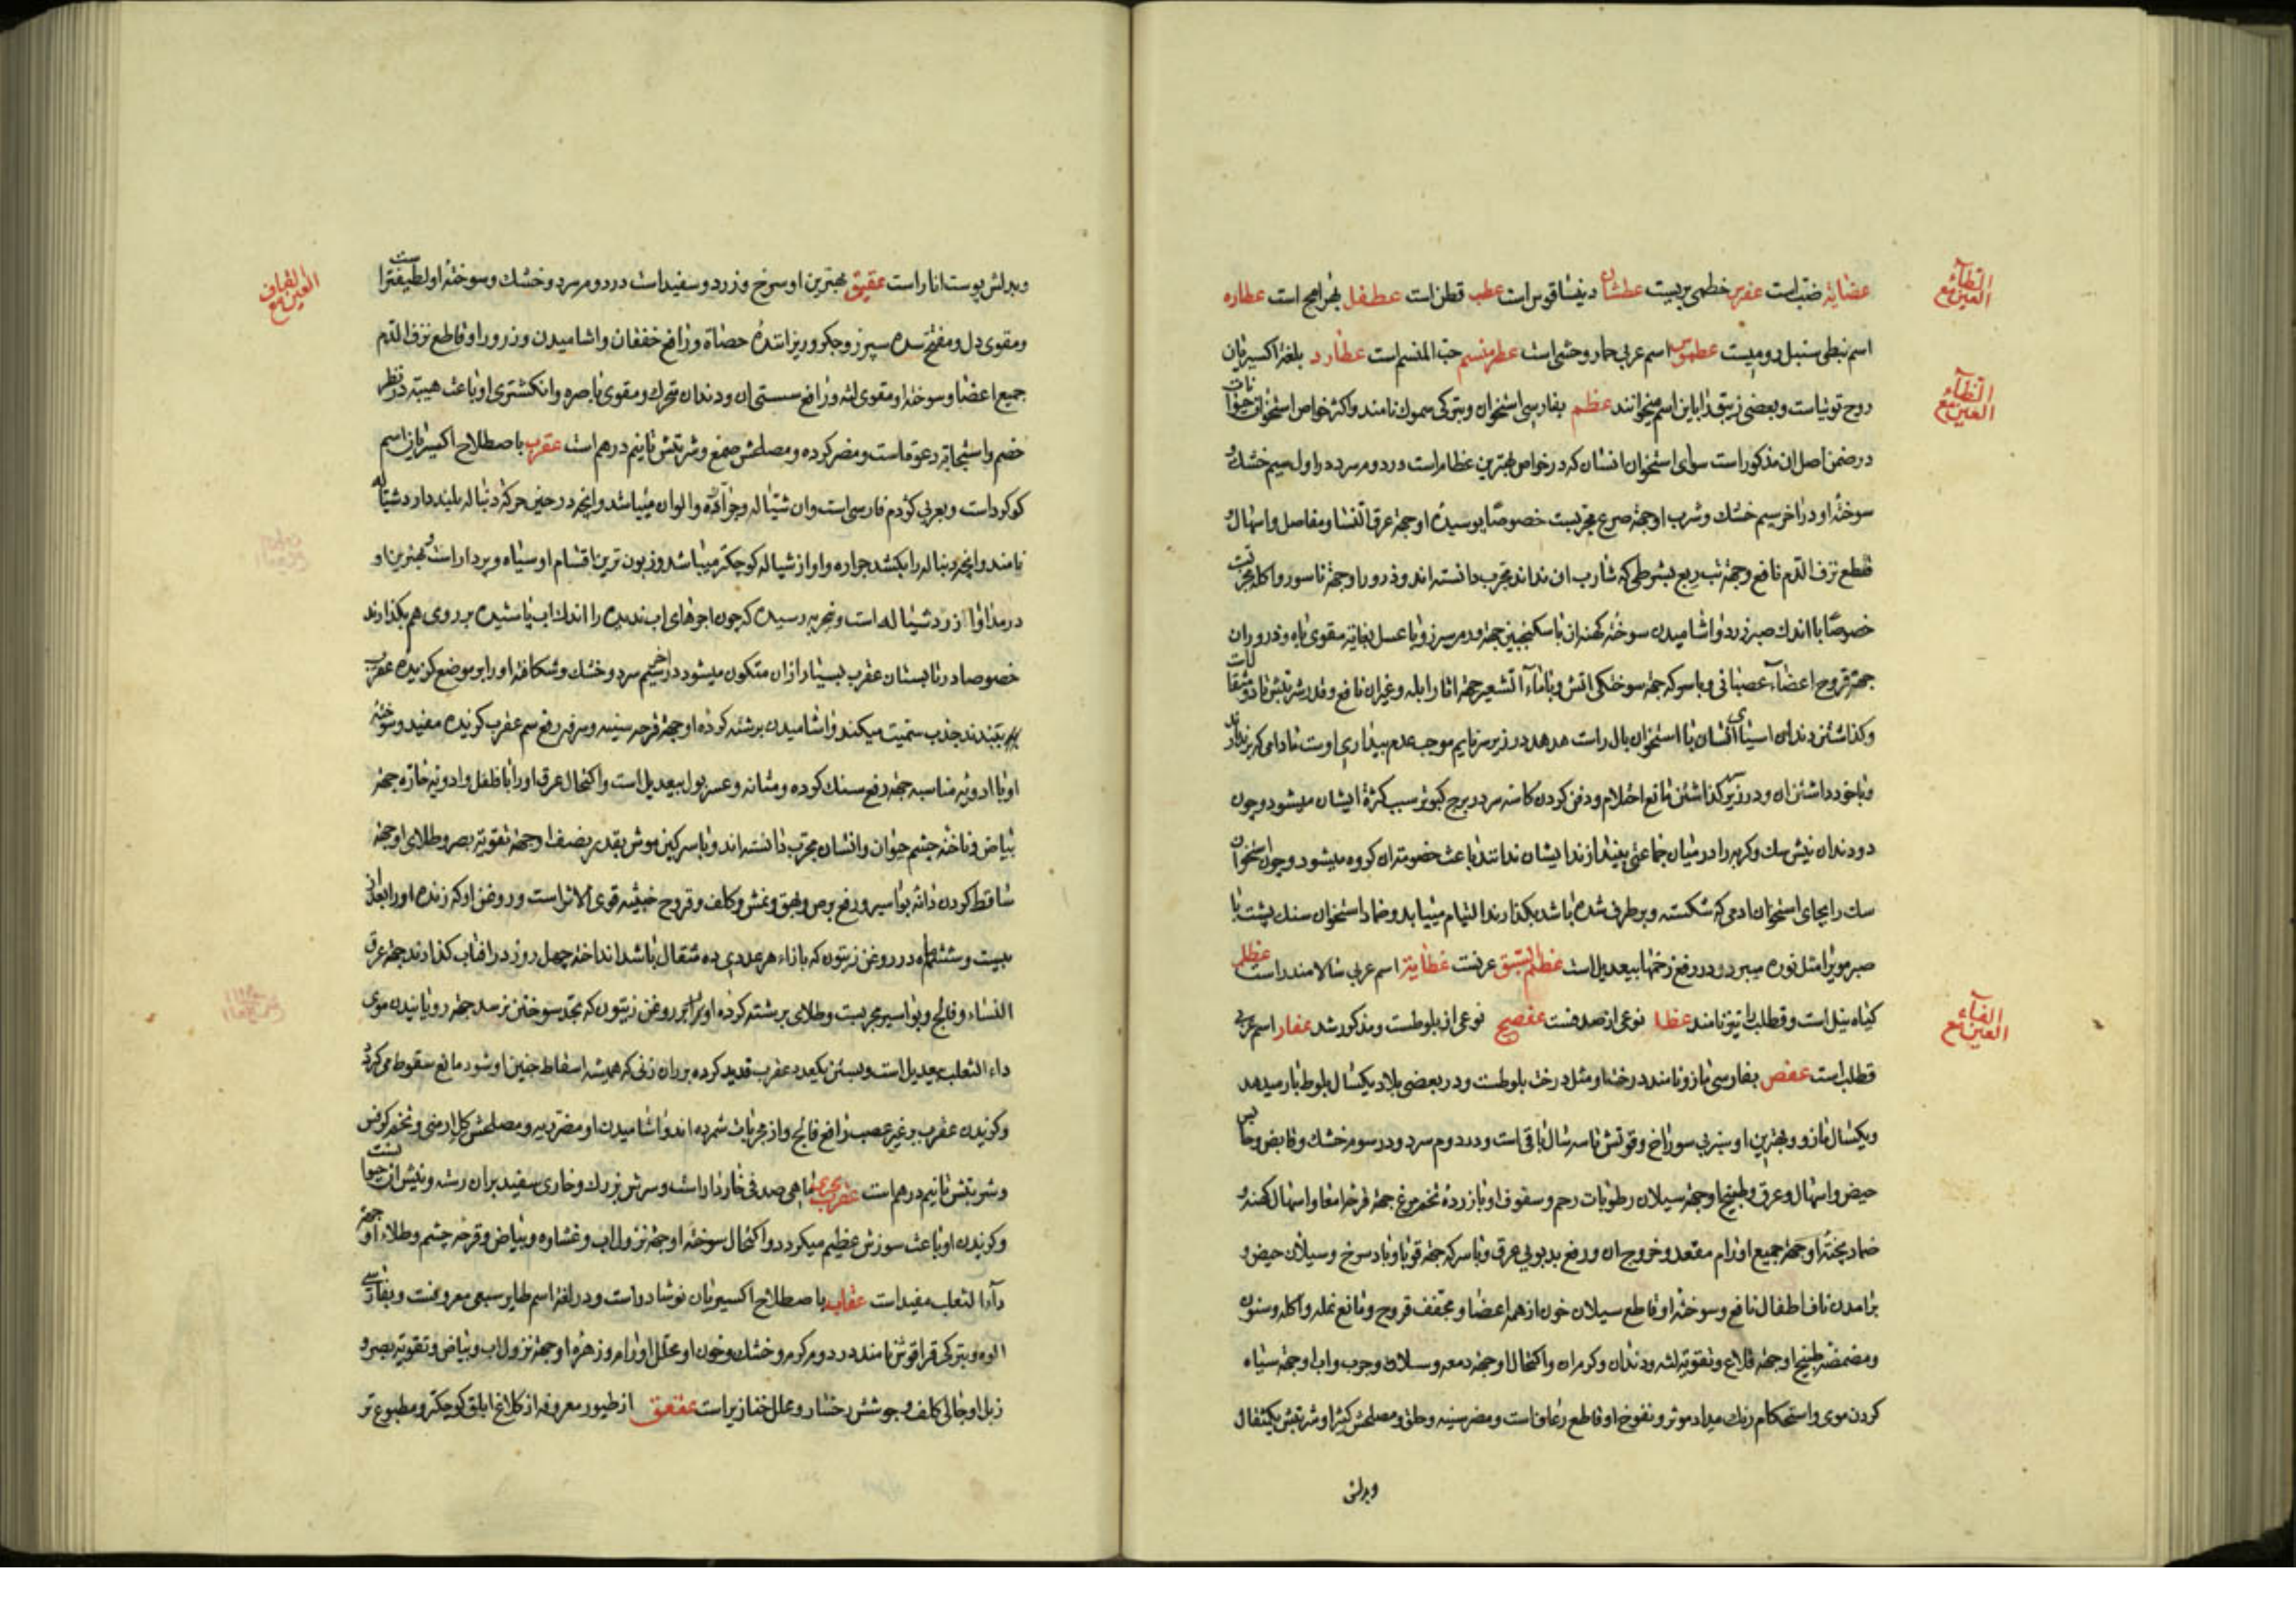 العین مع الطاء
عضایة ضب است عضرس خطمی بریست عطشان دینساقوس است عطب قطن است عطفل بهرامج است عطاره
اسم نبطی سنبل رومیست عطموس اسم عربی حمار وحشی است عطر منسم حب المنسم است عطارد بلغة اکسیریان
العین مع الظاء
روح توتیاست و بعضی زیبق را باین اسم میخوانند عظم بفارسی استخوان و بترکی سموك نامند و اکثر خواص استخوان حیوانات
در ضمن اصل ان مذکور است سوای استخوان انسان که در خواص بهترین عظام است در دوم سرد در اول سیم خشك و
سوخته او در اخر سیم خشك و شرب او جهة صرع مجربست خصوصا بوسیده او جهة عرق النسا و مفاصل و اسهال و
قطع نزف الدم نافع و جهة تب ربع بشرطی که شارب ان نداند مجرب دانسته اند و ذرور او جهة ناسور و اکله مجربست
خصوصا با اندك صبر زرد و اشامیدن سوخته کهنه ان با سکنجبین جهة ورم سپرز و با عسل بغایة مقوی باه و ذرور ان
جهة قروح اعضاء عصبانی و با سرکه جهة سوختگی اتش و با ماء الشعیر جهة اثار ابله و غیر ان نافع و قدر شربتش تا دو مثقال
و گذاشتن دندان اسیای انسان با استخوان بال راست هدهد در زیر سر نایم موجب عدم بیداری اوست تا دامی که برندارند
و با خود داشتن ان و در زیر سر گذاشتن مانع احتلام و دفن کردن کاسه سر در برج کبوتر سبب کثرة ایشان میشود و چون
دو دندان نیش سك و گربه را در میان جماعتی بیندازند ایشان ندانند باعث خصومت ان گروه میشود و چون استخوان
سك را بجای استخوان ادمی که شکسته و بر طرف شده باشد بگذارند التیام مییابد و ضماد استخوان سنك پشت با
صبر موی را مثل نوره میبرد و در رفع زخمها بیعدیل است عظلم عظایة اسم عربی سالامندرا است عظلم
العین مع الفاء
گیاه نیل است و قطلب را نیز نامند عظا نوعی از صدفست عفصیج نوعی از بلوطست و مذکور شد عفار اسم عربی
قطلب است عفص بفارسی مازو نامند درخت او مثل درخت بلوطست و در بعضی بلاد یکسال بلوط بار میدهد
و یکسال مازو و بهترین او سبز بی سوراخ و قوتش تا سه سال باقی است و در دوم سرد و در سوم خشك و قابض و حابس
حیض و اسهال و عرق و طبیخ او جهة سیلان رطوبات رحم و سفوف او با زرده تخم مرغ جهة قرحه امعا و اسهال کهنه و
ضماد پخته او جهة جمیع اورام مقعد و خروج ان و رفع بدبویی عرق و با سرکه جهة قوبا و باد سرخ و سیلان حیض و
برامدن ناف اطفال نافع و سوخته او قاطع سیلان خون از همه اعضا و مجفف قروح و مانع نمله و اکله و سنون
و مضمضه طبیخ او جهة قلاع و تقویة لثه و دندان و کرم ان و اکتحال او جهة دمعه و سلاق و جرب و اب او جهة سیاه
کردن موی و استحکام رنك مداد موثر و نفوخ او قاطع رعاف است و مضر سینه و حلق و مصلحش کتیرا و شربتش یکمثقال
و بدلش
العین مع القاف
و بدلش پوست انار است عقیق بهترین او سرخ و زرد و سفید است در دوم سرد و خشك و سوخته او لطیفتر است
و مقوی دل و مفتح سده سپرز و جگر و ریزاننده حصاة و رافع خفقان و اشامیدن و ذرور او قاطع نزف الدم
جمیع اعضا و سوخته او مقوی لثه و رافع سستی ان و دندان متحرك و مقوی باصره و انکشتری او باعث هیبة در نظر
خصم و استجابة دعوة است و مضر گرده و مصلحش صمغ و شربتش تا نیم درهم است عقرب باصطلاح اکسیریان اسم
کوکرد است و بعربی کژدم فارسی است و ان شیاله و جراره و الوان میباشد و انچه در حین حرکة دنباله بلند دارد شیاله
نامند و انچه دنباله را بکشد جراره و او از شیاله کوچکتر میباشد و زبون ترین اقسام او سیاه و پردار است و بهترین او
در مداوا زرد شیاله است و بتجربه رسیده که چون اجرهای اب ندیده را اندك اب پاشیده بر روی هم بگذارند
خصوصا در تابستان عقرب بسیار از ان متکون میشود در اخر سیم سرد و خشك و شکافته او را بر موضع گزیده عقرب
ببندند جذب سمیت میکند و اشامیدن برشته کرده او جهة قرحه سینه و سرفه و رفع سم عقرب گزیده مفید و سوخته
او با ادویه مناسبه جهة رفع سنك گرده و مثانه و عسر بول بیعدیل است و اکتحال عرق او را با فلفل و ادویه حاره جهة
بیاض و ناخنه چشم حیوان و انسان مجرب دانسته اند و با سرکین موش بقدر نصف او جهة تقویة بصر و طلای او جهة
ساقط کردن دانه بواسیر و رفع برص و بهق و نمش و کلف و قروح خبیثه قوی الاثر است و روغن او که زنده او را بعد از
بیست و ششم ماه در روغن زیتون که بازاء هر عددی ده مثقال باشد انداخته چهل روز در افتاب گذارند جهة عرق
النساء و فالج و بواسیر مجربست و طلای برشته کرده او در روغن زیتون که بحد سوختن نرسد جهة رویانیدن موی
داء الثعلب بیعدیل است و بستن یکعدد عقرب قدید کرده بر ران زنی که همیشه اسقاط جنین او شود مانع سقوط می گردد
و گزیدن عقرب بر غیر عصب رافع فالج و از مجربات شمرده اند و اشامیدن او مضر ریه و مصلحش گل ارمنی و تخم کرفس
و شربتش تا نیم درهم است عقرب بحری ماهی صدفی خاردار است و سرش بزرك و خاری سفید بر ان رسته و نیش ان حیوانست
و گزیدن او باعث سوزش عظیم میگردد و اکتحال سوخته او جهة نزول اب و غشاوه و بیاض و قرحه چشم و طلاء او جهة
داء الثعلب مفید است عقاب باصطلاح اکسیریان نوشادر است و در لغة اسم طایر سبعی معروفست و بفارسی
اله و بترکی قراقوش نامند در دوم گرم و خشك و خون او محلل اورام و زهره او جهة نزول اب و بیاض و تقویة بصر و
زبل او جالی کلف و جوشش رخسار و محلل خنازیر است عقعق از طیور معروفه از کلاغ ابلق کوچکتر و مطبوع تر